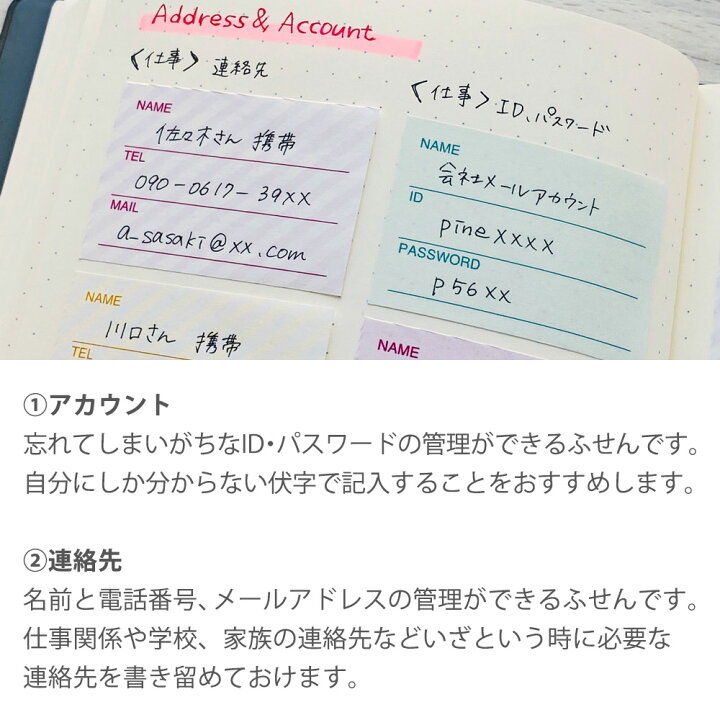 Address & Account
〈仕事〉連絡先
NAME
佐々木さん 携帯
TEL
090-0617-39XX
MAIL
a_sasaki@xx.com
NAME
川口さん 携帯
TEL
〈仕事〉ID、パスワード
NAME
会社メールアカウント
ID
pinexxxx
PASSWORD
P56xx
NAME
①アカウント
忘れてしまいがちなID・パスワードの管理ができるふせんです。
自分にしか分からない伏字で記入することをおすすめします。
②連絡先
名前と電話番号、メールアドレスの管理ができるふせんです。
仕事関係や学校、家族の連絡先などいざという時に必要な
連絡先を書き留めておけます。